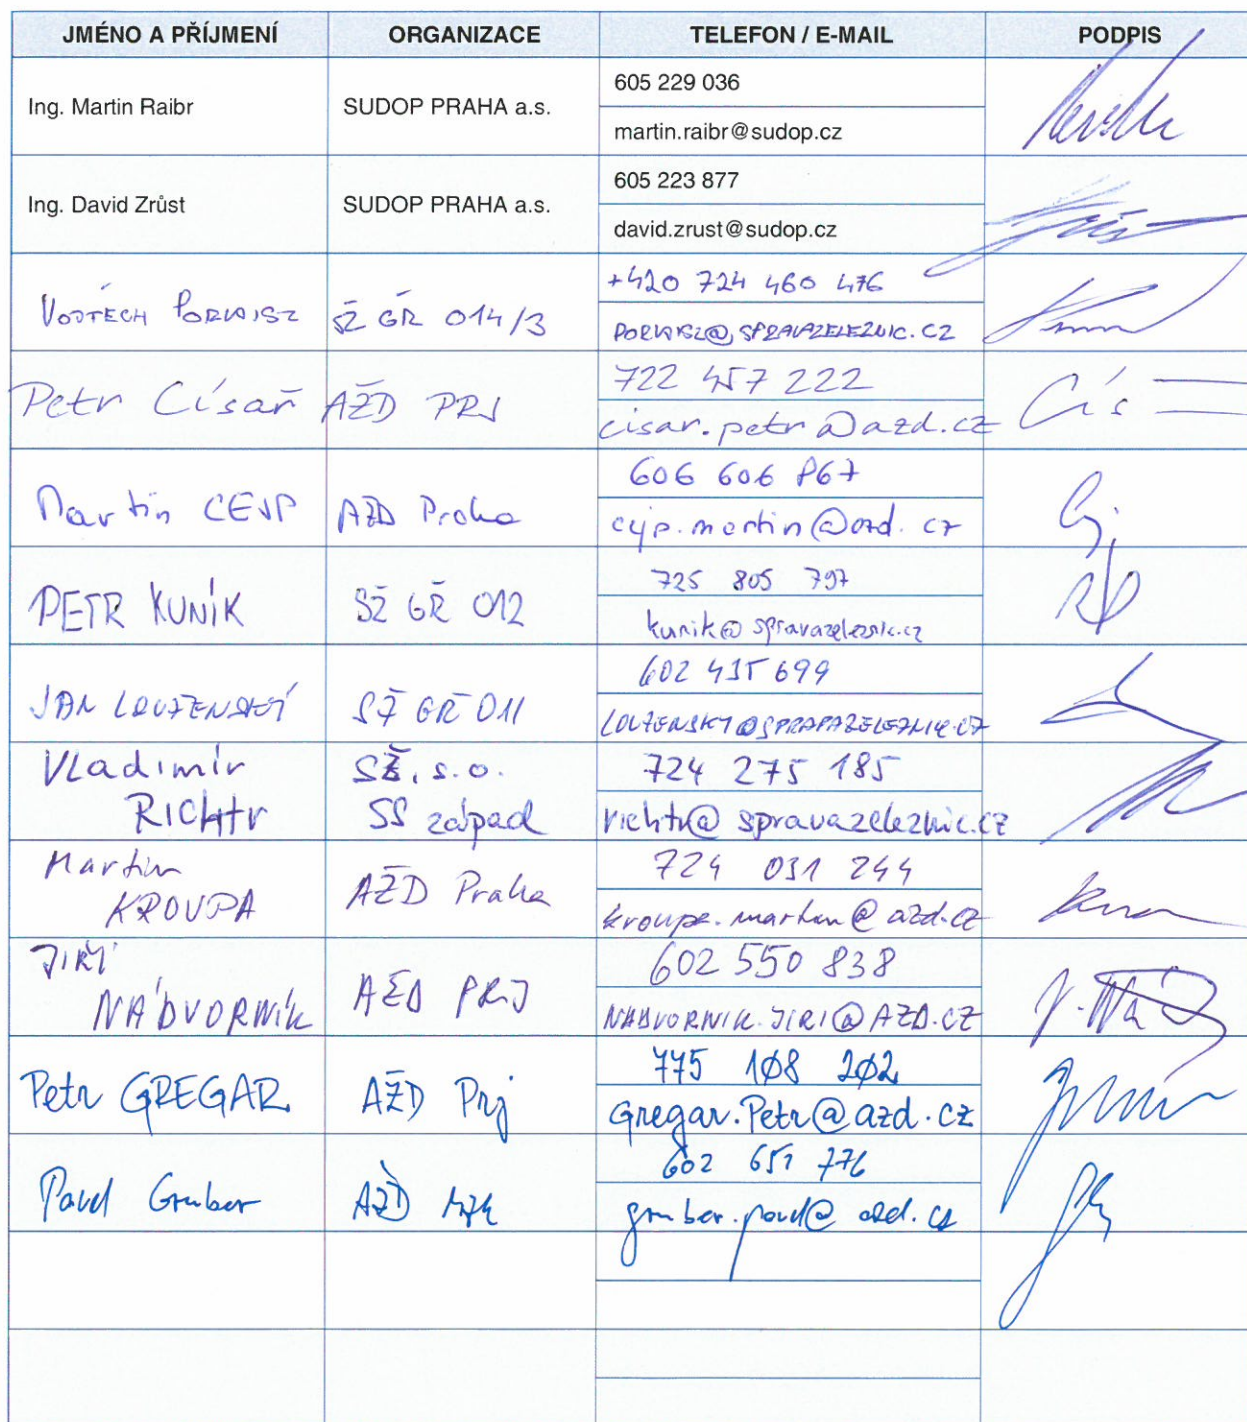 JMÉNO A PŘÍJMENÍ ORGANIZACE TELEFON / E-MAIL PODPIS
Ing. Martin Raibr SUDOP PRAHA a.s. 605 229 036
martin.raibr@sudop.cz
Ing. David Zrůst SUDOP PRAHA a.s. 605 223 877
david.zrust@sudop.cz
VOJTĚCH PORWISZ SŽ GŘ 014/3 +420 724 460 476
PORWISZ@SPRAVAZELEZNIC.CZ
Petr Císař AŽD PRJ 722 457 222
cisar.petr@azd.cz
Martin CEJP AŽD Praha 606 606 867
cejp.martin@azd.cz
PETR KUNÍK SŽ GŘ 012 725 805 797
kunik@spravazeleznic.cz
JAN LOUŽENSKÝ SŽ GŘ 011 602 435 699
LOUZENSKY@SPRAVAZELEZNIC.CZ
Vladimír SŽ, s.o. 724 275 185
RICHtr SS západ richtr@spravazeleznic.cz
Martin AŽD Praha 724 031 244
KROUPA kroupa.martin@azd.cz
JIŘÍ AŽD PRJ 602 550 838
NÁDVORNÍK NADVORNIK.JIRI@AZD.CZ
Petr GREGAR AŽD Prj 775 108 202
Gregar.Petr@azd.cz
Pavel Gruber AŽD 602 651 776
gruber.pavel@azd.cz